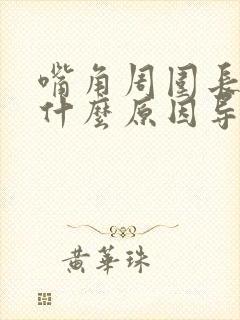 嘴角周围長
什麼原因导
黄華珠